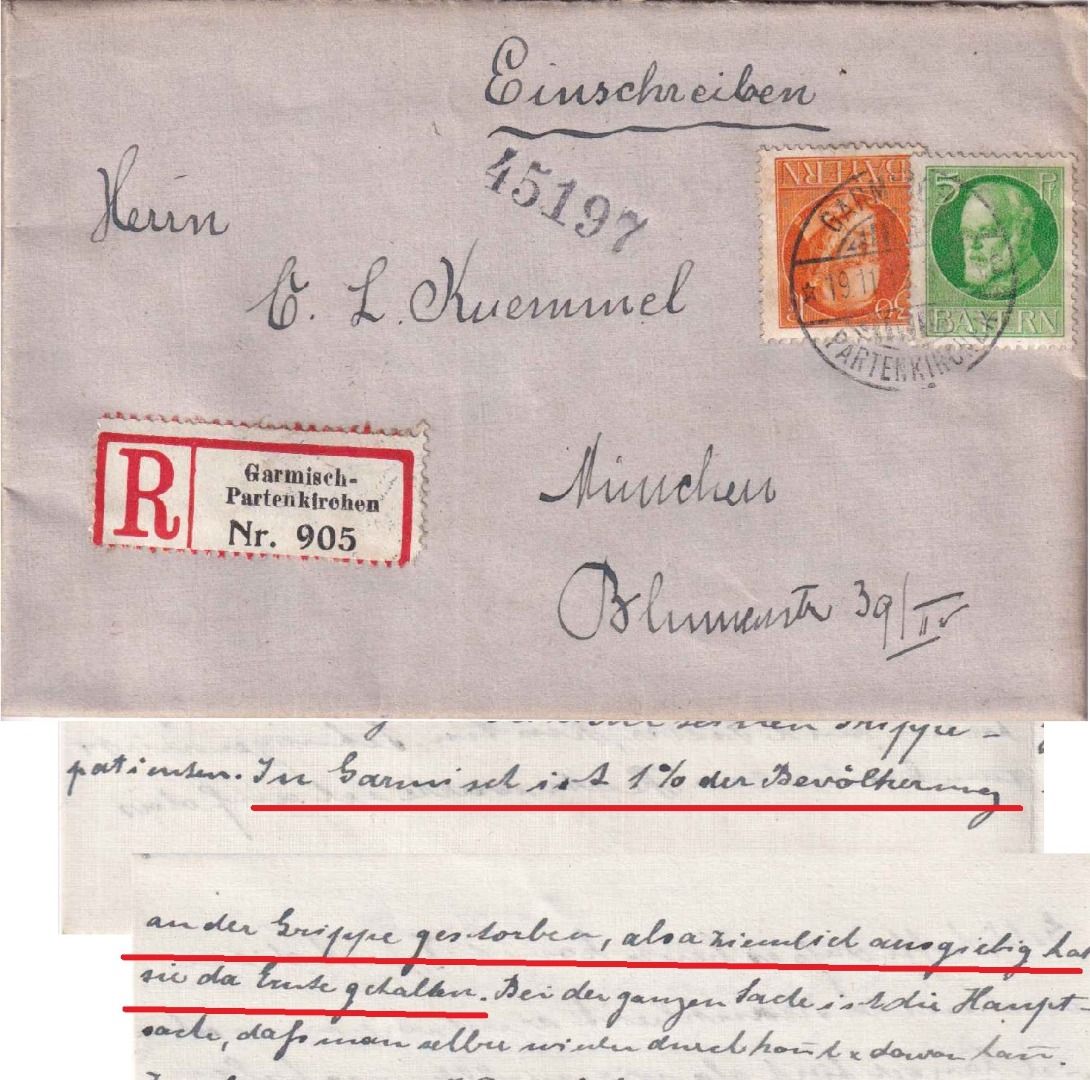 Einschreiben
45197
Herrn
C. L. Kuemmel
München
Blumenstr 39/IV
R
Garmisch-
Partenkirchen
Nr. 905
BAYERN
30 Pf
5 Pf
BAYERN
GARM
19 11
PARTENKIRCHEN
Grippe-
patienten. In Garmisch ist 1% der Bevölkerung
an der Grippe gestorben, also ziemlich ausgiebig hat
sie da Ernte gehalten. Bei der ganzen Sache ist die Haupt-
sache, daß man selber wieder durchkom̄t & davon